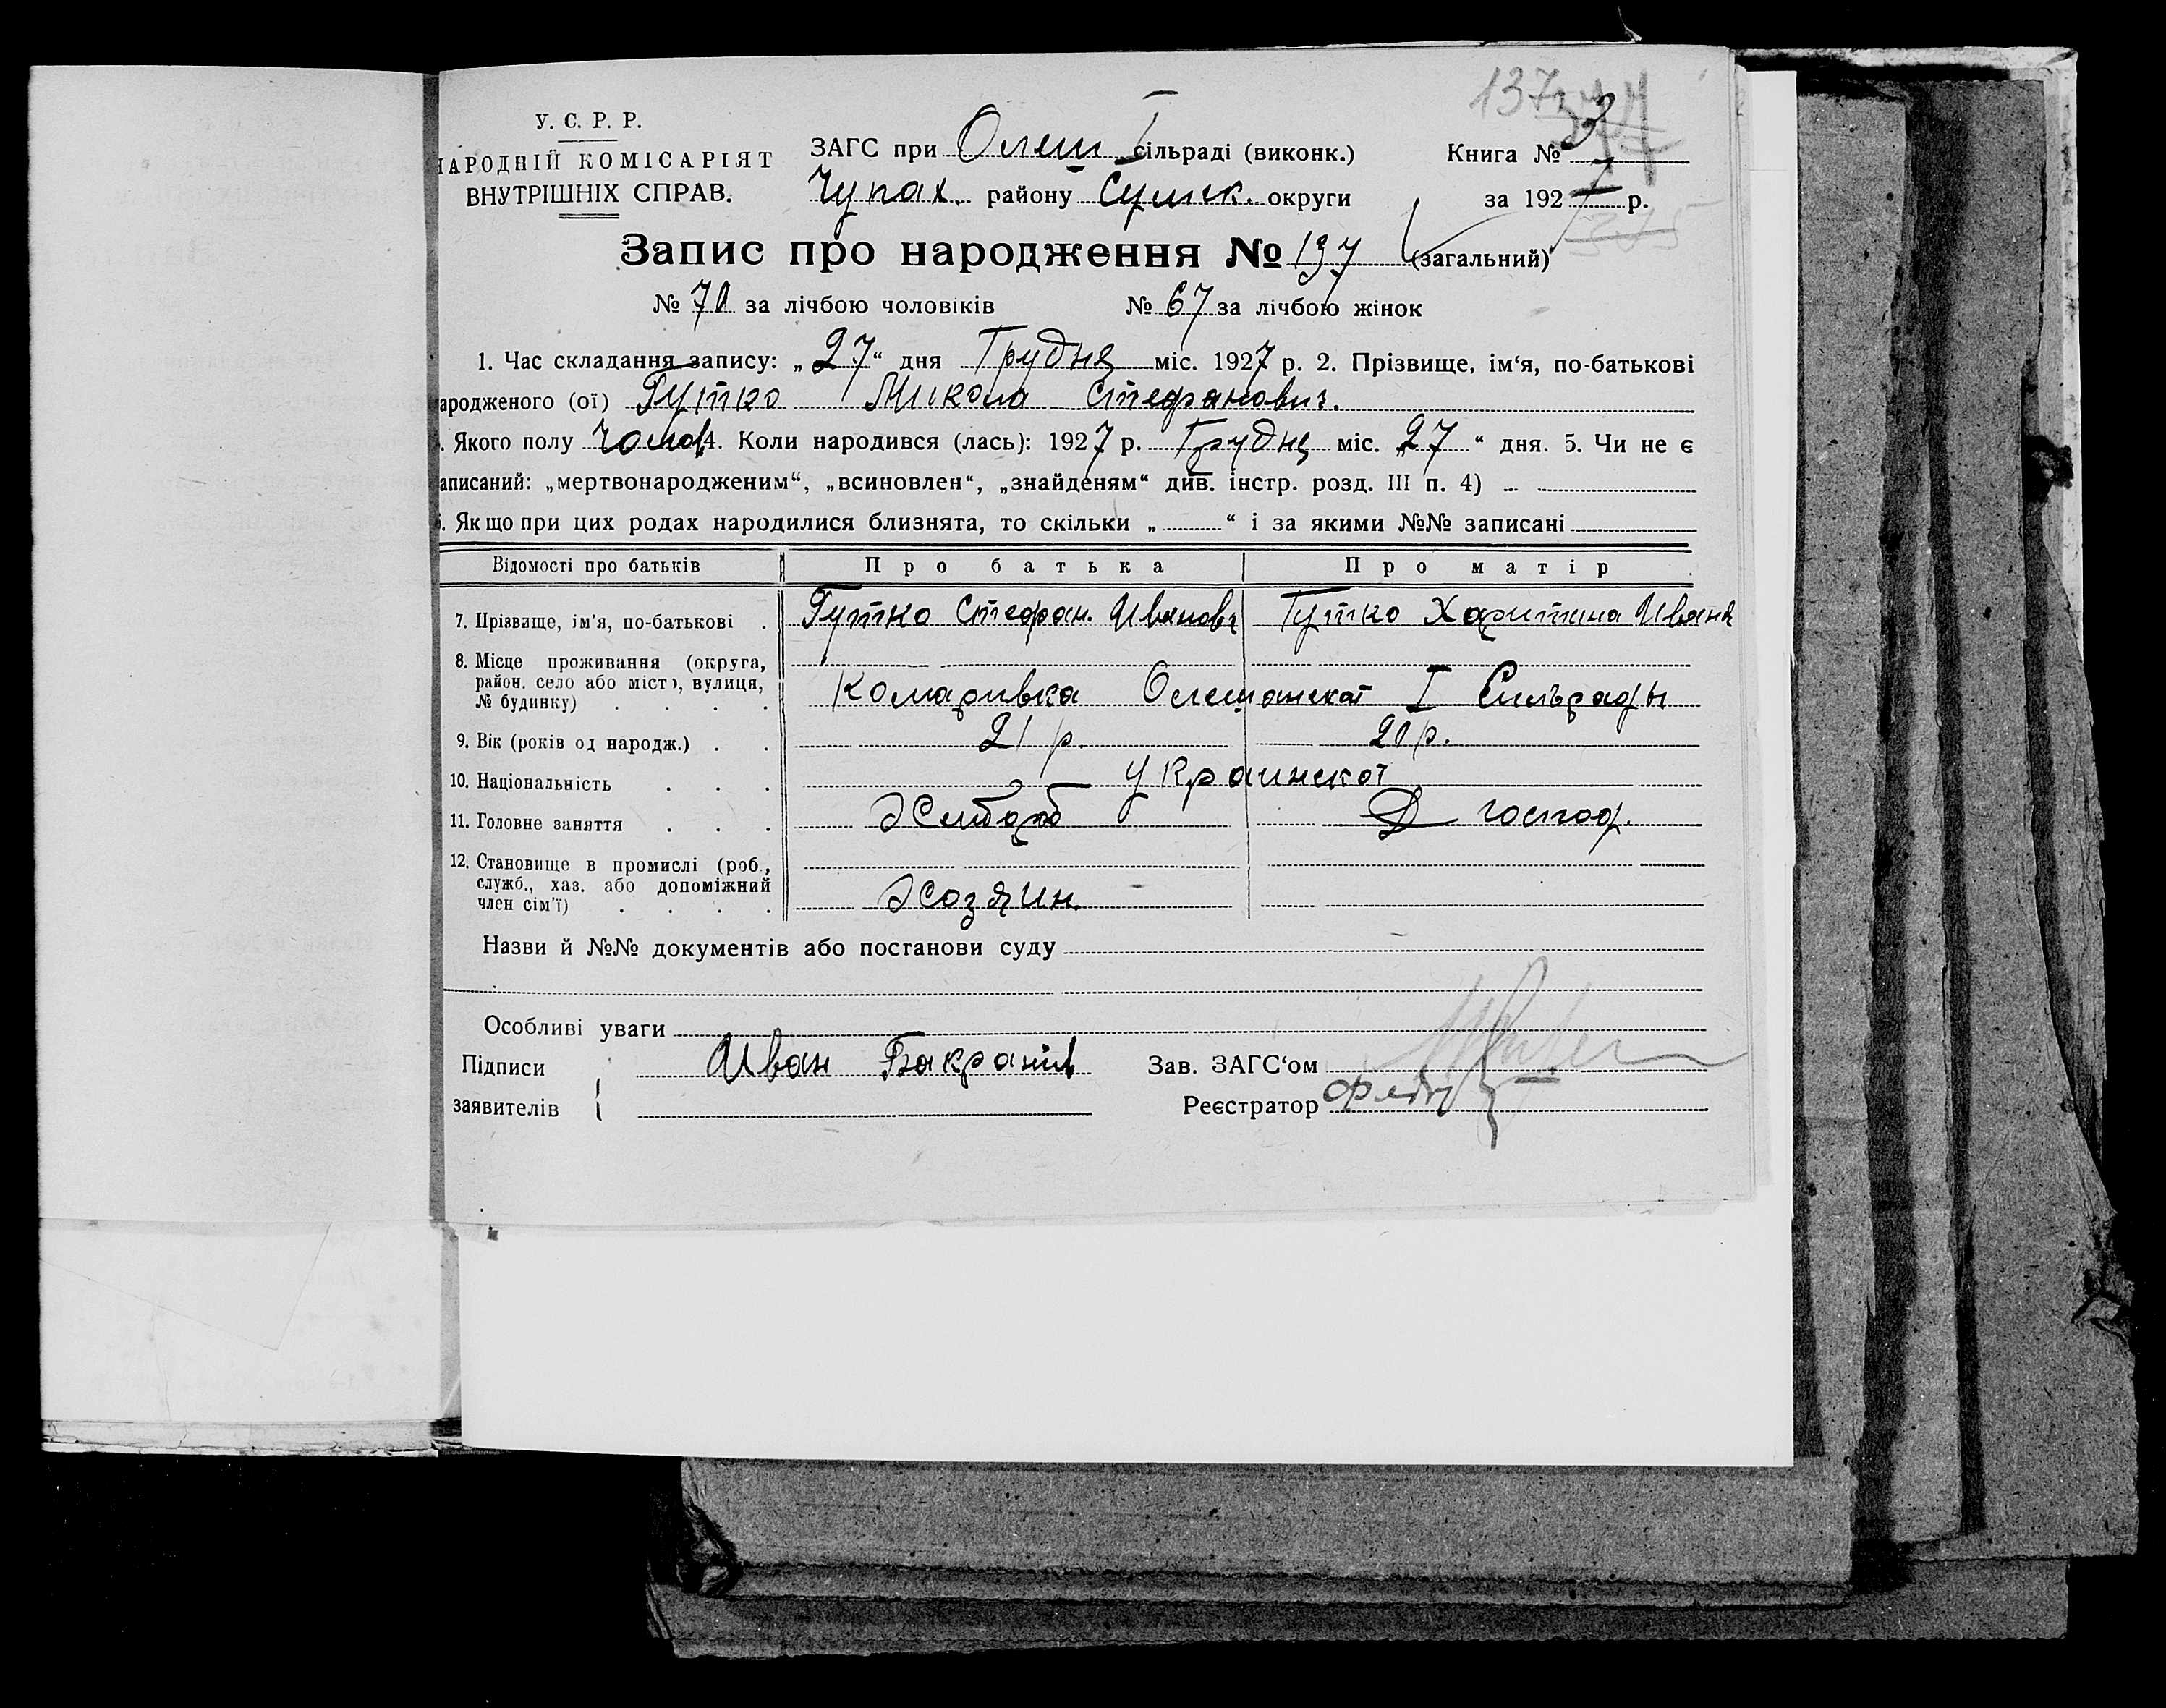 137
У. С. Р. Р.
НАРОДНІЙ КОМІСАРІЯТ
ВНУТРІШНІХ СПРАВ.
ЗАГС при Олеш I сільраді (виконк.)
Книга № 3
Чупах. району Сумск. округи
за 1927 р.
375
Запис про народження № 137 (загальний)
№ 70 за лічбою чоловіків № 67 за лічбою жінок
1. Час складання запису: „27“ дня Грудня міс. 1927 р. 2. Прізвище, ім‘я, по-батькові
ародженого (ої) Гутко Микола Стефанович.
. Якого полу Чолов 4. Коли народився (лась): 1927 р. Грудня міс. „27“ дня. 5. Чи не є
аписаний: „мертвонародженим“, „всиновлен“, „знайденям“ див. інстр. розд. III п. 4) –
. Якщо при цих родах народилися близнята, то скільки „ “ і за якими №№ записані
Відомості про батьків Про батька Про матір
7. Прізвище, ім'я, по-батькові . Гутко Стефан. Ивановч Гутко Харитина Ивана
8. Місце проживання (округа,
район, село або місто, вулиця,
№ будинку) . . . . Комаривка Олешанскої I Сильради
9. Вік (років од народж.) . . 21 р. 20 р.
10. Національність . . . Украинскої
11. Головне заняття . . . Хлібороб Д господ.
12. Становище в промислі (роб.,
служб., хаз. або допоміжний
член сім'ї) . . . . Хозяин.
Назви й №№ документів або постанови суду
Особливі уваги
Підписи Иван Зав. ЗАГС‘ом
заявителів Реєстратор